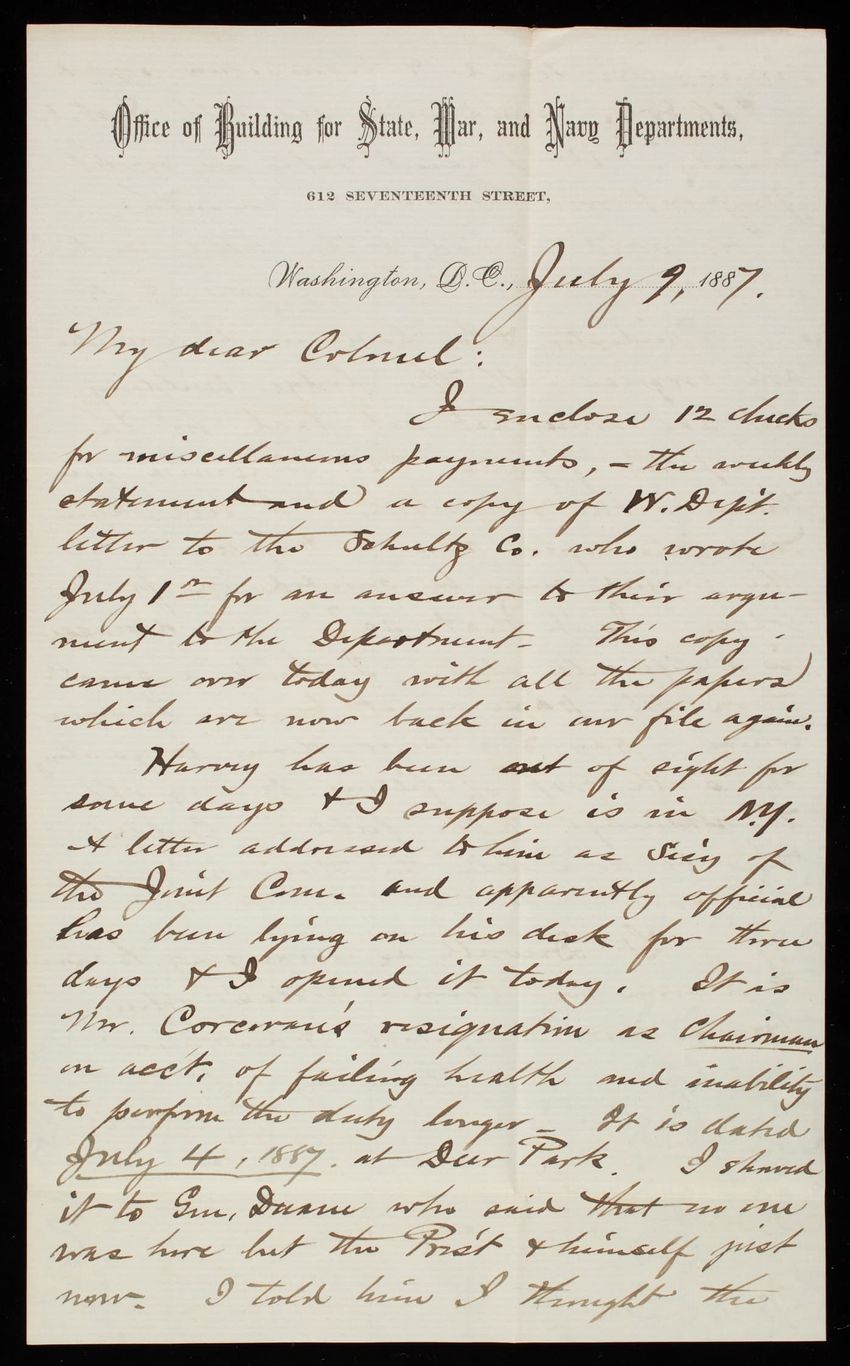 Office of Building for State, War, and Navy Departments,
612 SEVENTEENTH STREET,
Washington, D. C., July 9, 1887.
My dear Colonel:
I enclose 12 checks
for miscellaneous payments, – the weekly
statement and a copy of W. Dep't.
letter to the Schultz Co. who wrote
July 1st for an answer to their argu-
ment to the Department – This copy
came over today with all the papers
which are now back in our file again.
Harvey has been out of sight for
some days & I suppose is in N.Y.
A letter addressed to him as Secy of
the Joint Com. and apparently official
has been lying on his desk for three
days & I opened it today. It is
Mr. Corcoran's resignation as Chairman
on acc't. of failing health and inability
to perform the duty longer – It is dated
July 4, 1887. at Deer Park. I showed
it to Gen. Duane who said that no one
was here but the Pres't & himself just
now. I told him I thought the